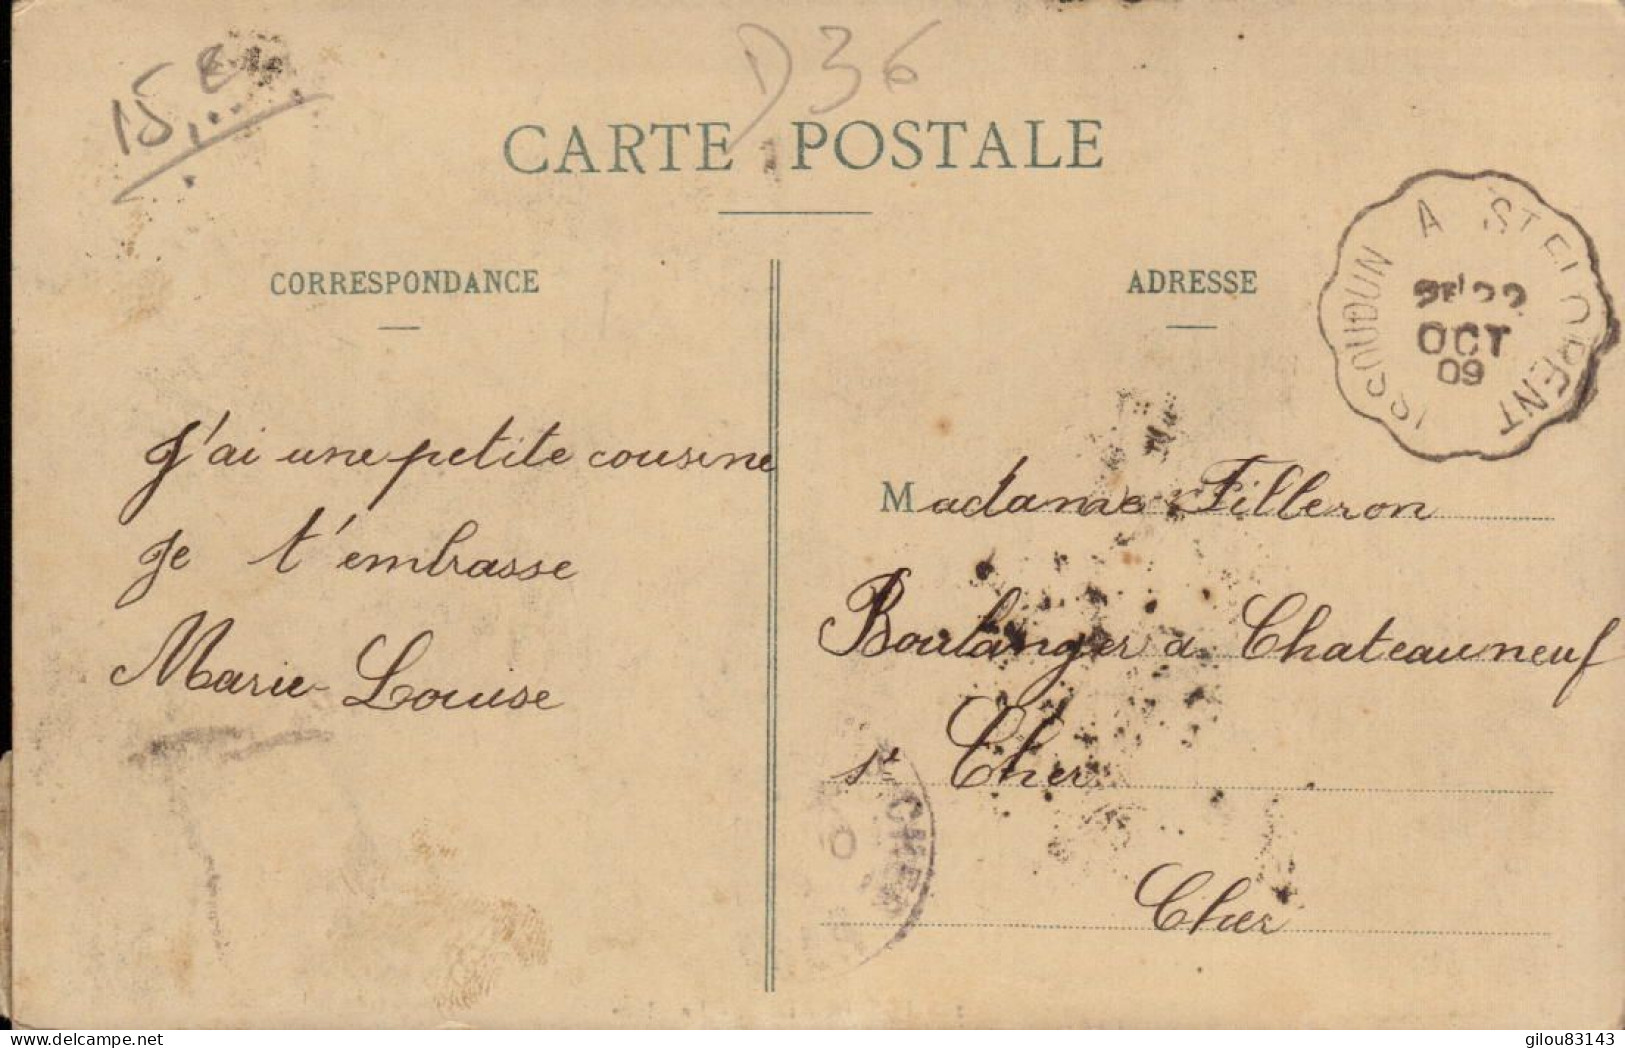 15,
D36
CARTE POSTALE
CORRESPONDANCE
ADRESSE
ISSOUDUN A ST FLORENT
22
OCT
09
J'ai une petite cousine
Je t'embrasse
Marie-Louise
Madame Filleron
Boulanger à Chateauneuf
s/ Cher
Cher
CHER
gilou83143